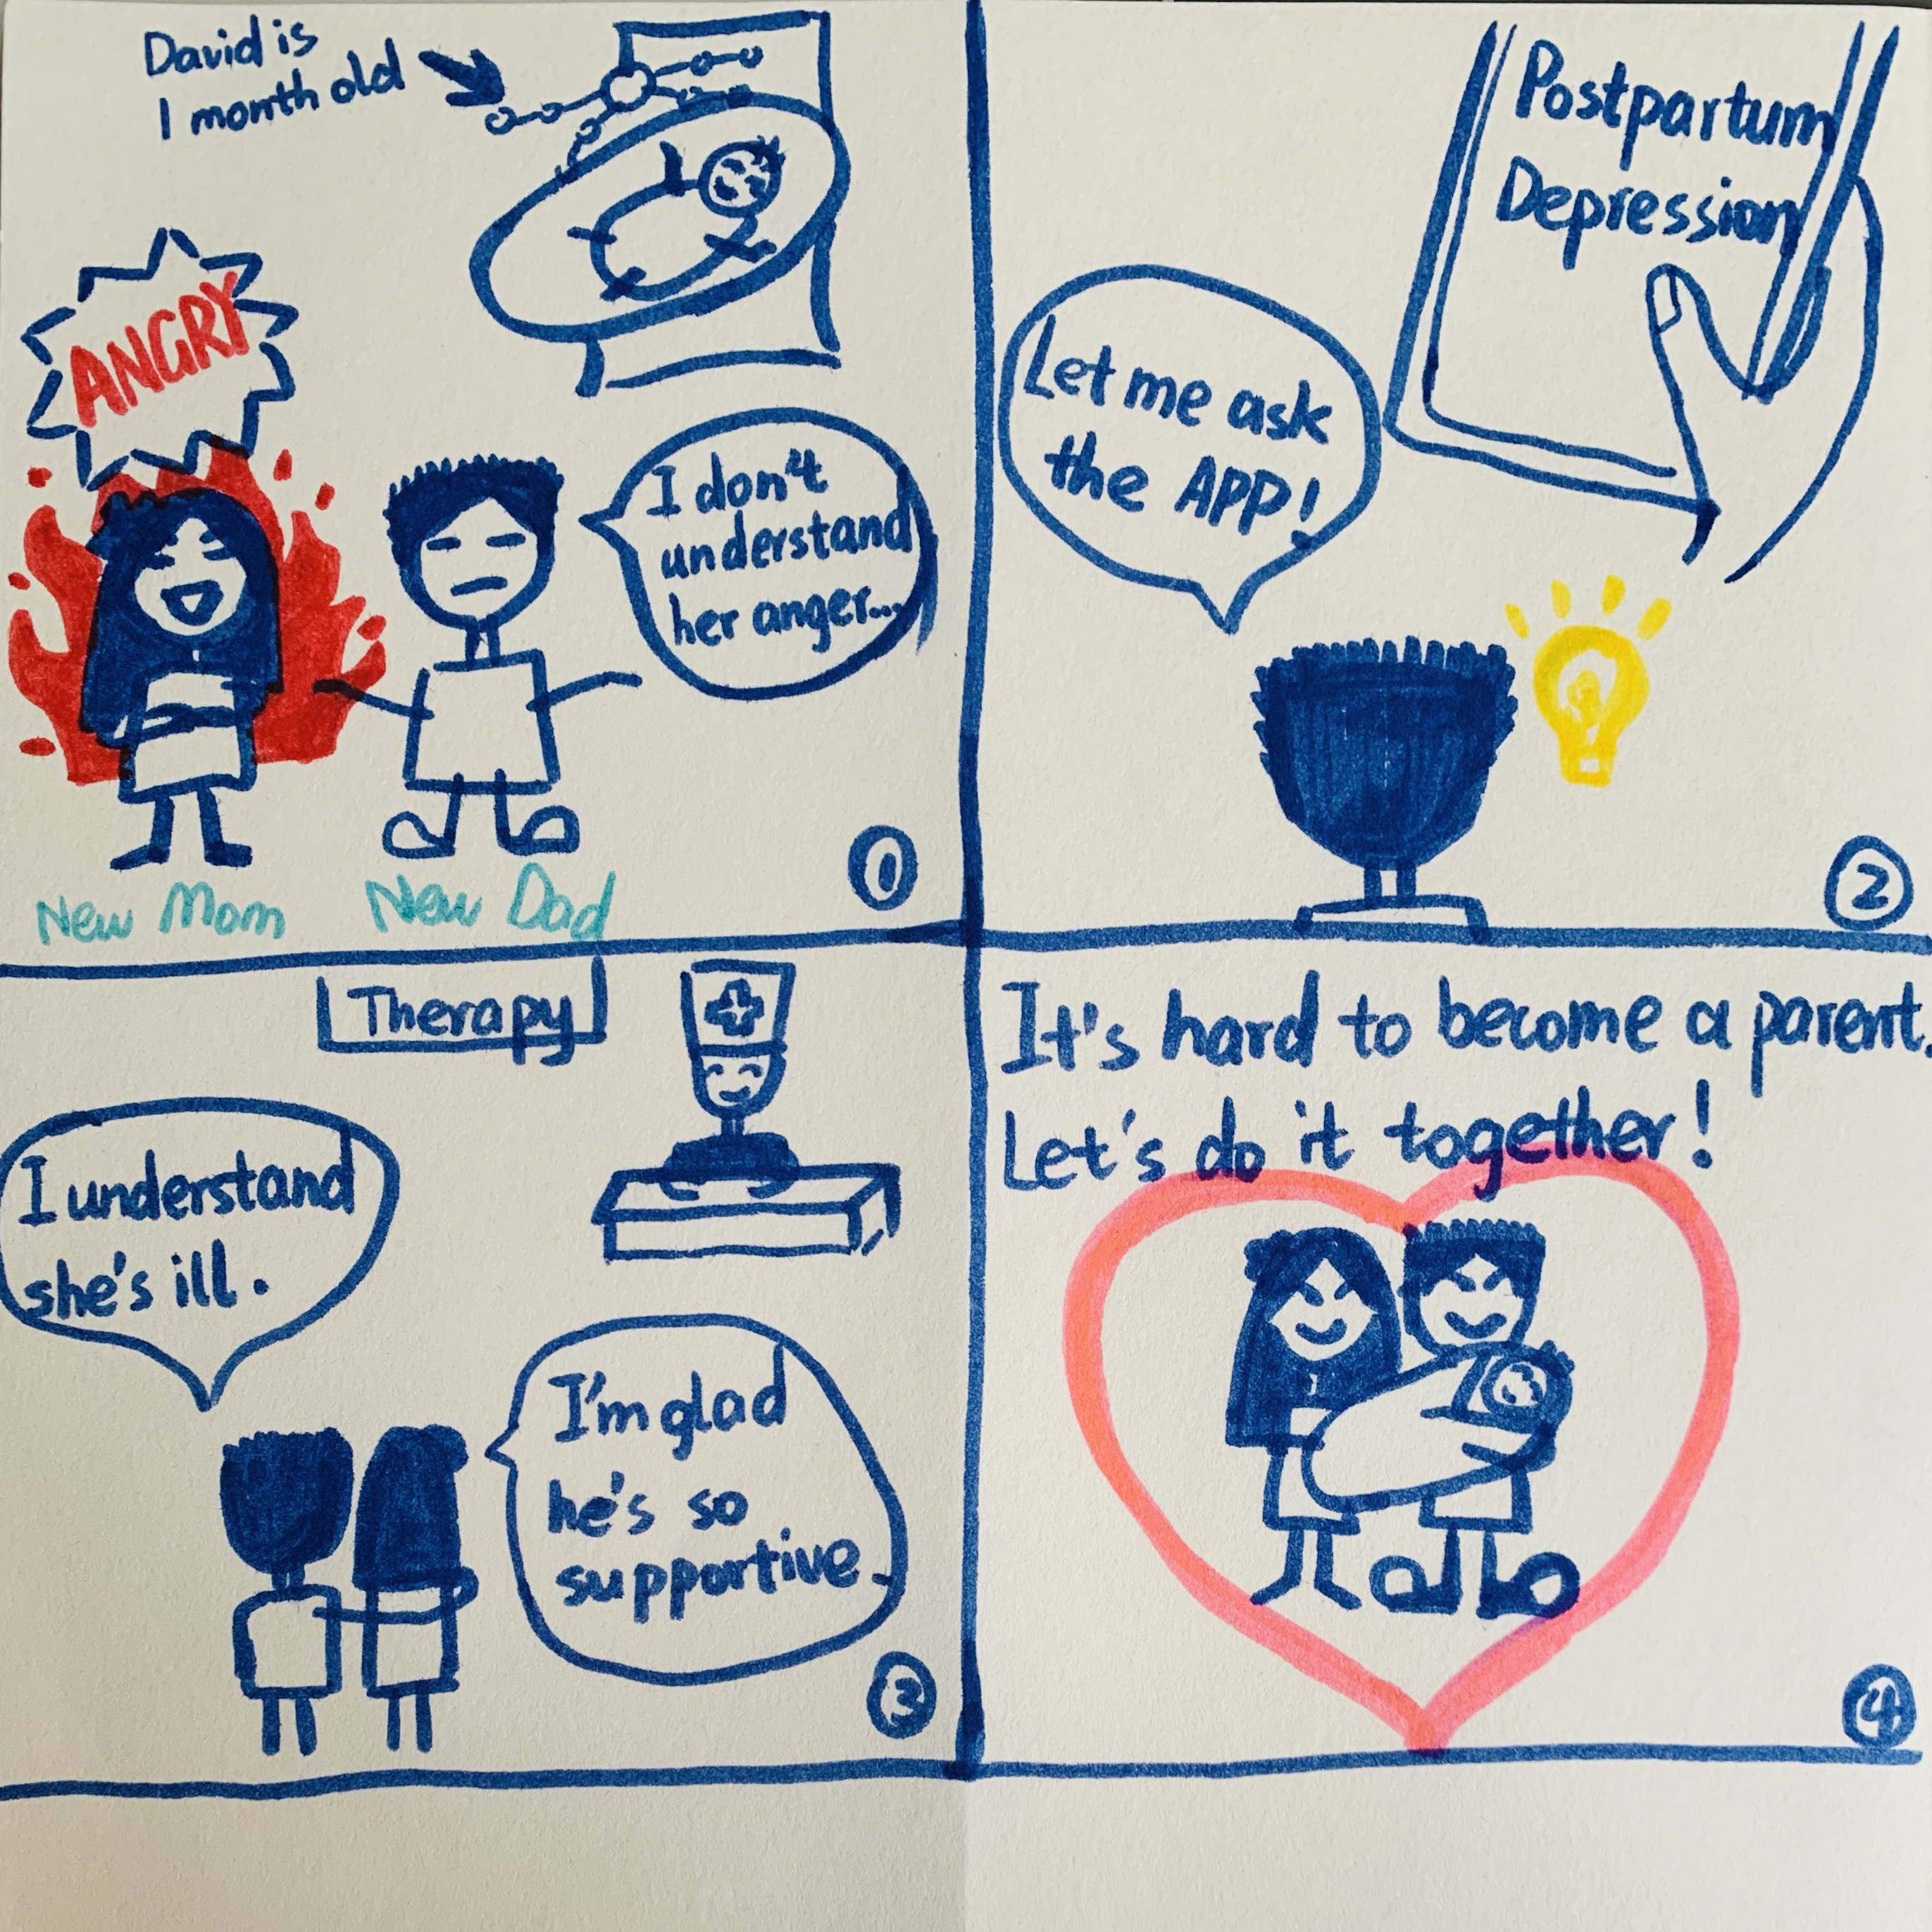 David is
1 month old
ANGRY
I don't
understand
her anger...
New Mom
New Dad
1
Postpartum
Depression
Let me ask
the APP!
2
Therapy
I understand
she's ill.
I'm glad
he's so
supportive.
3
It's hard to become a parent.
Let's do it together!
4